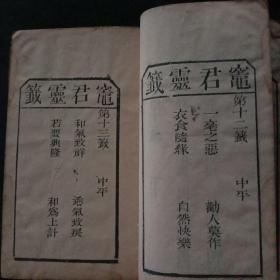 竈君靈籤
第十二籤
中平
一毫之惡
勸人莫作
衣食隨緣
自然快樂
竈君靈籤
第十三籤
中平
和氣致祥
乖氣致戾
若要興隆
和為上計